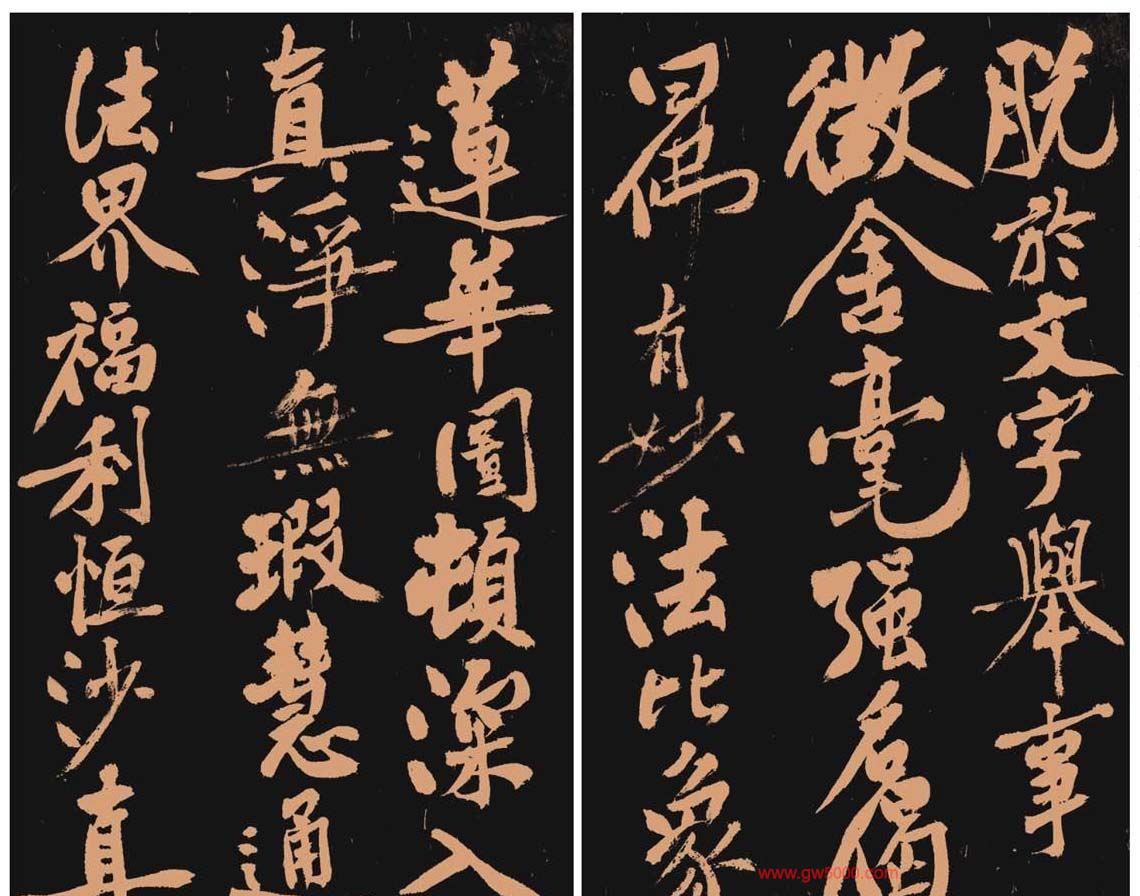 脫於文字舉事
徵含毫强名偈
曰佛有妙法比象
蓮華圓頓深入
真淨無瑕慧通
法界福利恒沙直
www.gw5000.com